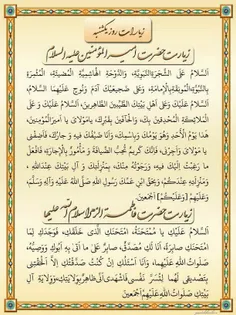 زیارات روز یکشنبه
زیارت حضرت امیرالمؤمنین علیه السلام
اَلسَّلامُ عَلَى الشَّجَرَةِ النَّبَوِیَّةِ، وَالدَّوْحَةِ الْهاشِمِیَّةِ الْمُضیئَةِ، الْمُثْمِرَةِ
بِالنُّبُوَّةِ الْمُونِقَةِ بِالْاِمامَةِ، وَعَلى ضَجیعَیْکَ آدَمَ وَنُوحٍ عَلَیْهِمَا السَّلامُ
اَلسَّلامُ عَلَیْکَ وَعَلى اَهْلِ بَیْتِکَ الطَّیِّبینَ الطَّاهِرینَ، اَلسَّلامُ عَلَیْکَ وَعَلَى
الْمَلائِکَةِ الْمُحْدِقینَ بِکَ، وَالْحافّینَ بِقَبْرِکَ یا مَوْلایَ یا اَمیرَالْمُؤْمِنینَ
هذا یَوْمُ الْاَحَدِ وَهُوَ یَوْمُکَ وَبِاسْمِکَ، وَاَنَا ضَیْفُکَ فیهِ وَ جارُکَ، فَاَضِفْنى
یا مَوْلاىَ وَ اَجِرْنى، فَاِنَّکَ کَریمٌ تُحِبُّ الضِّیافَةَ وَ مَأْمُورٌ بِالْاِجارَةِ، فَافْعَلْ
ما رَغِبْتُ اِلَیْکَ فیهِ وَرَجَوْتُهُ مِنْکَ، بِمَنْزِلَتِکَ وَ آلِ بَیْتِکَ عِنْدَاللهِ، وَ
مَنْزِلَتِهِ عِنْدَکُمْ، وَبِحَقِّ ابْنِ عَمِّکَ رَسُولِ اللهِ صَلَّى اللهُ عَلَیْهِ وَآلِهِ وَسَلَّمَ،
وَعَلَیْهِمْ [وَعَلَیْکُمْ] اَجْمَعینَ.
زیارت حضرت فاطمه زهرا سلام الله علیها
اَلسَّلامُ عَلَیْکِ یا مُمْتَحَنَةُ، امْتَحَنَکِ الَّذى خَلَقَکِ، فَوَجَدَکِ لِمَا
امْتَحَنَکِ صابِرَةً، اَنَا لَکِ مُصَدِّقٌ، صابِرٌ عَلى ما اَتى بِهِ اَبُوکِ وَوَصِیُّهُ،
صَلَواتُ اللهِ عَلَیْهِما، وَاَنَا اَسْئَلُکِ اِنْ کُنْتُ صَدَّقْتُکِ اِلاَّ اَلْحَقْتِنى
بِتَصْدیقى لَهُما، لِتُسَرَّ نَفْسى، فَاشْهَدى اَنّى ظاهِرٌ بِوِلایَتِکِ، وَوِلایَةِ آلِ
بَیْتِکِ صَلَواتُ اللهِ عَلَیْهِمْ اَجْمَعینَ.